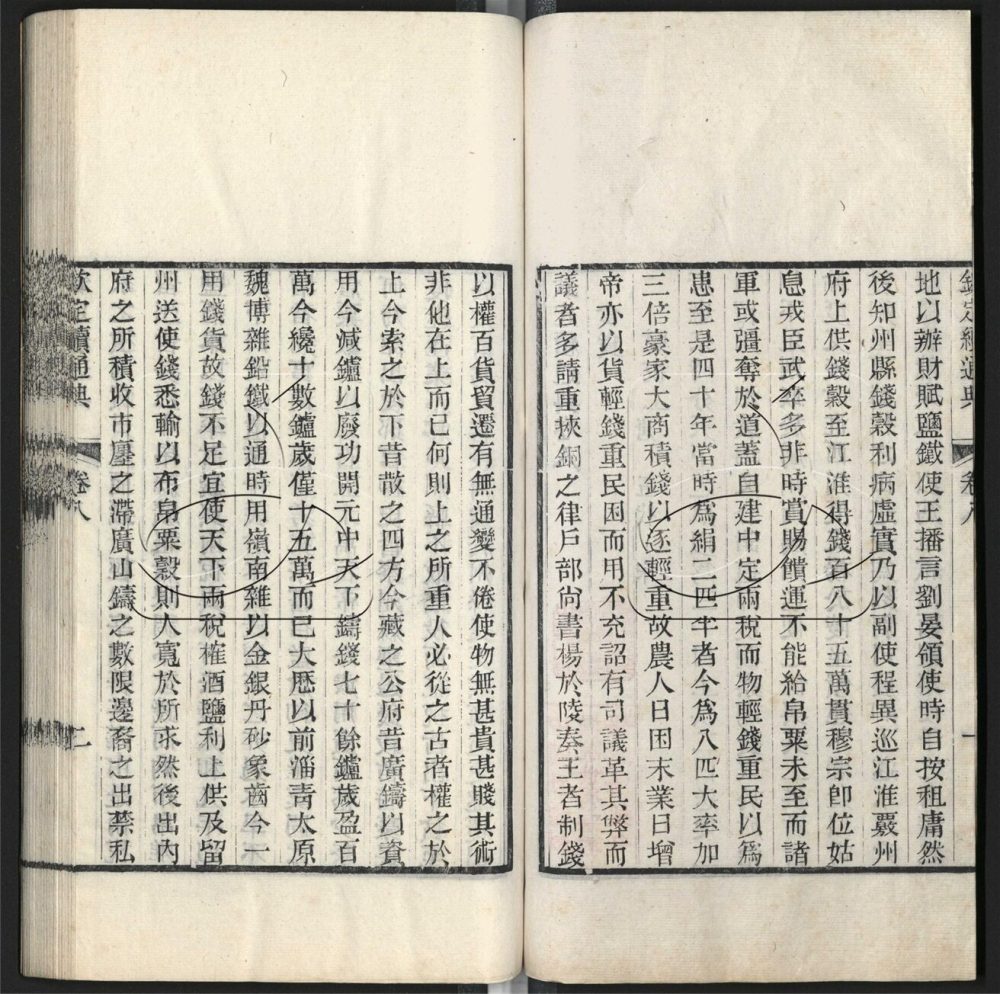 欽定續通典 卷八 一
地以辦財賦鹽鐵使王播言劉晏領使時自按租庸然
後知州縣錢穀利病虛實乃以副使程異巡江淮覈州
府上供錢穀至江淮得錢百八十五萬貫穆宗卽位姑
息戎臣武卒多非時賞賜饋運不能給帛粟未至而諸
軍或彊奪於道蓋自建中定兩稅而物輕錢重民以爲
患至是四十年當時爲絹二匹半者今爲八匹大率加
三倍豪家大商積錢以逐輕重故農人日困末業日增
帝亦以貨輕錢重民困而用不充詔有司議革其弊而
議者多請重挾銅之律戶部尚書楊於陵奏王者制錢
以權百貨貿遷有無通變不倦使物無甚貴甚賤其術
非他在上而已何則上之所重人必從之古者權之於
上今索之於下昔散之四方今藏之公府昔廣鑄以資
用今減鑪以廢功開元中天下鑄錢七十餘鑪歲盈百
萬今纔十數鑪歲僅十五萬而已大厯以前淄青太原
魏博雜鉛鐵以通時用嶺南雜以金銀丹砂象齒今一
用錢貨故錢不足宜使天下兩稅榷酒鹽利上供及留
州送使錢悉輸以布帛粟穀則人寬於所求然後出內
府之所積收市廛之滯廣山鑄之數限邊裔之出禁私
欽定續通典 卷八 二